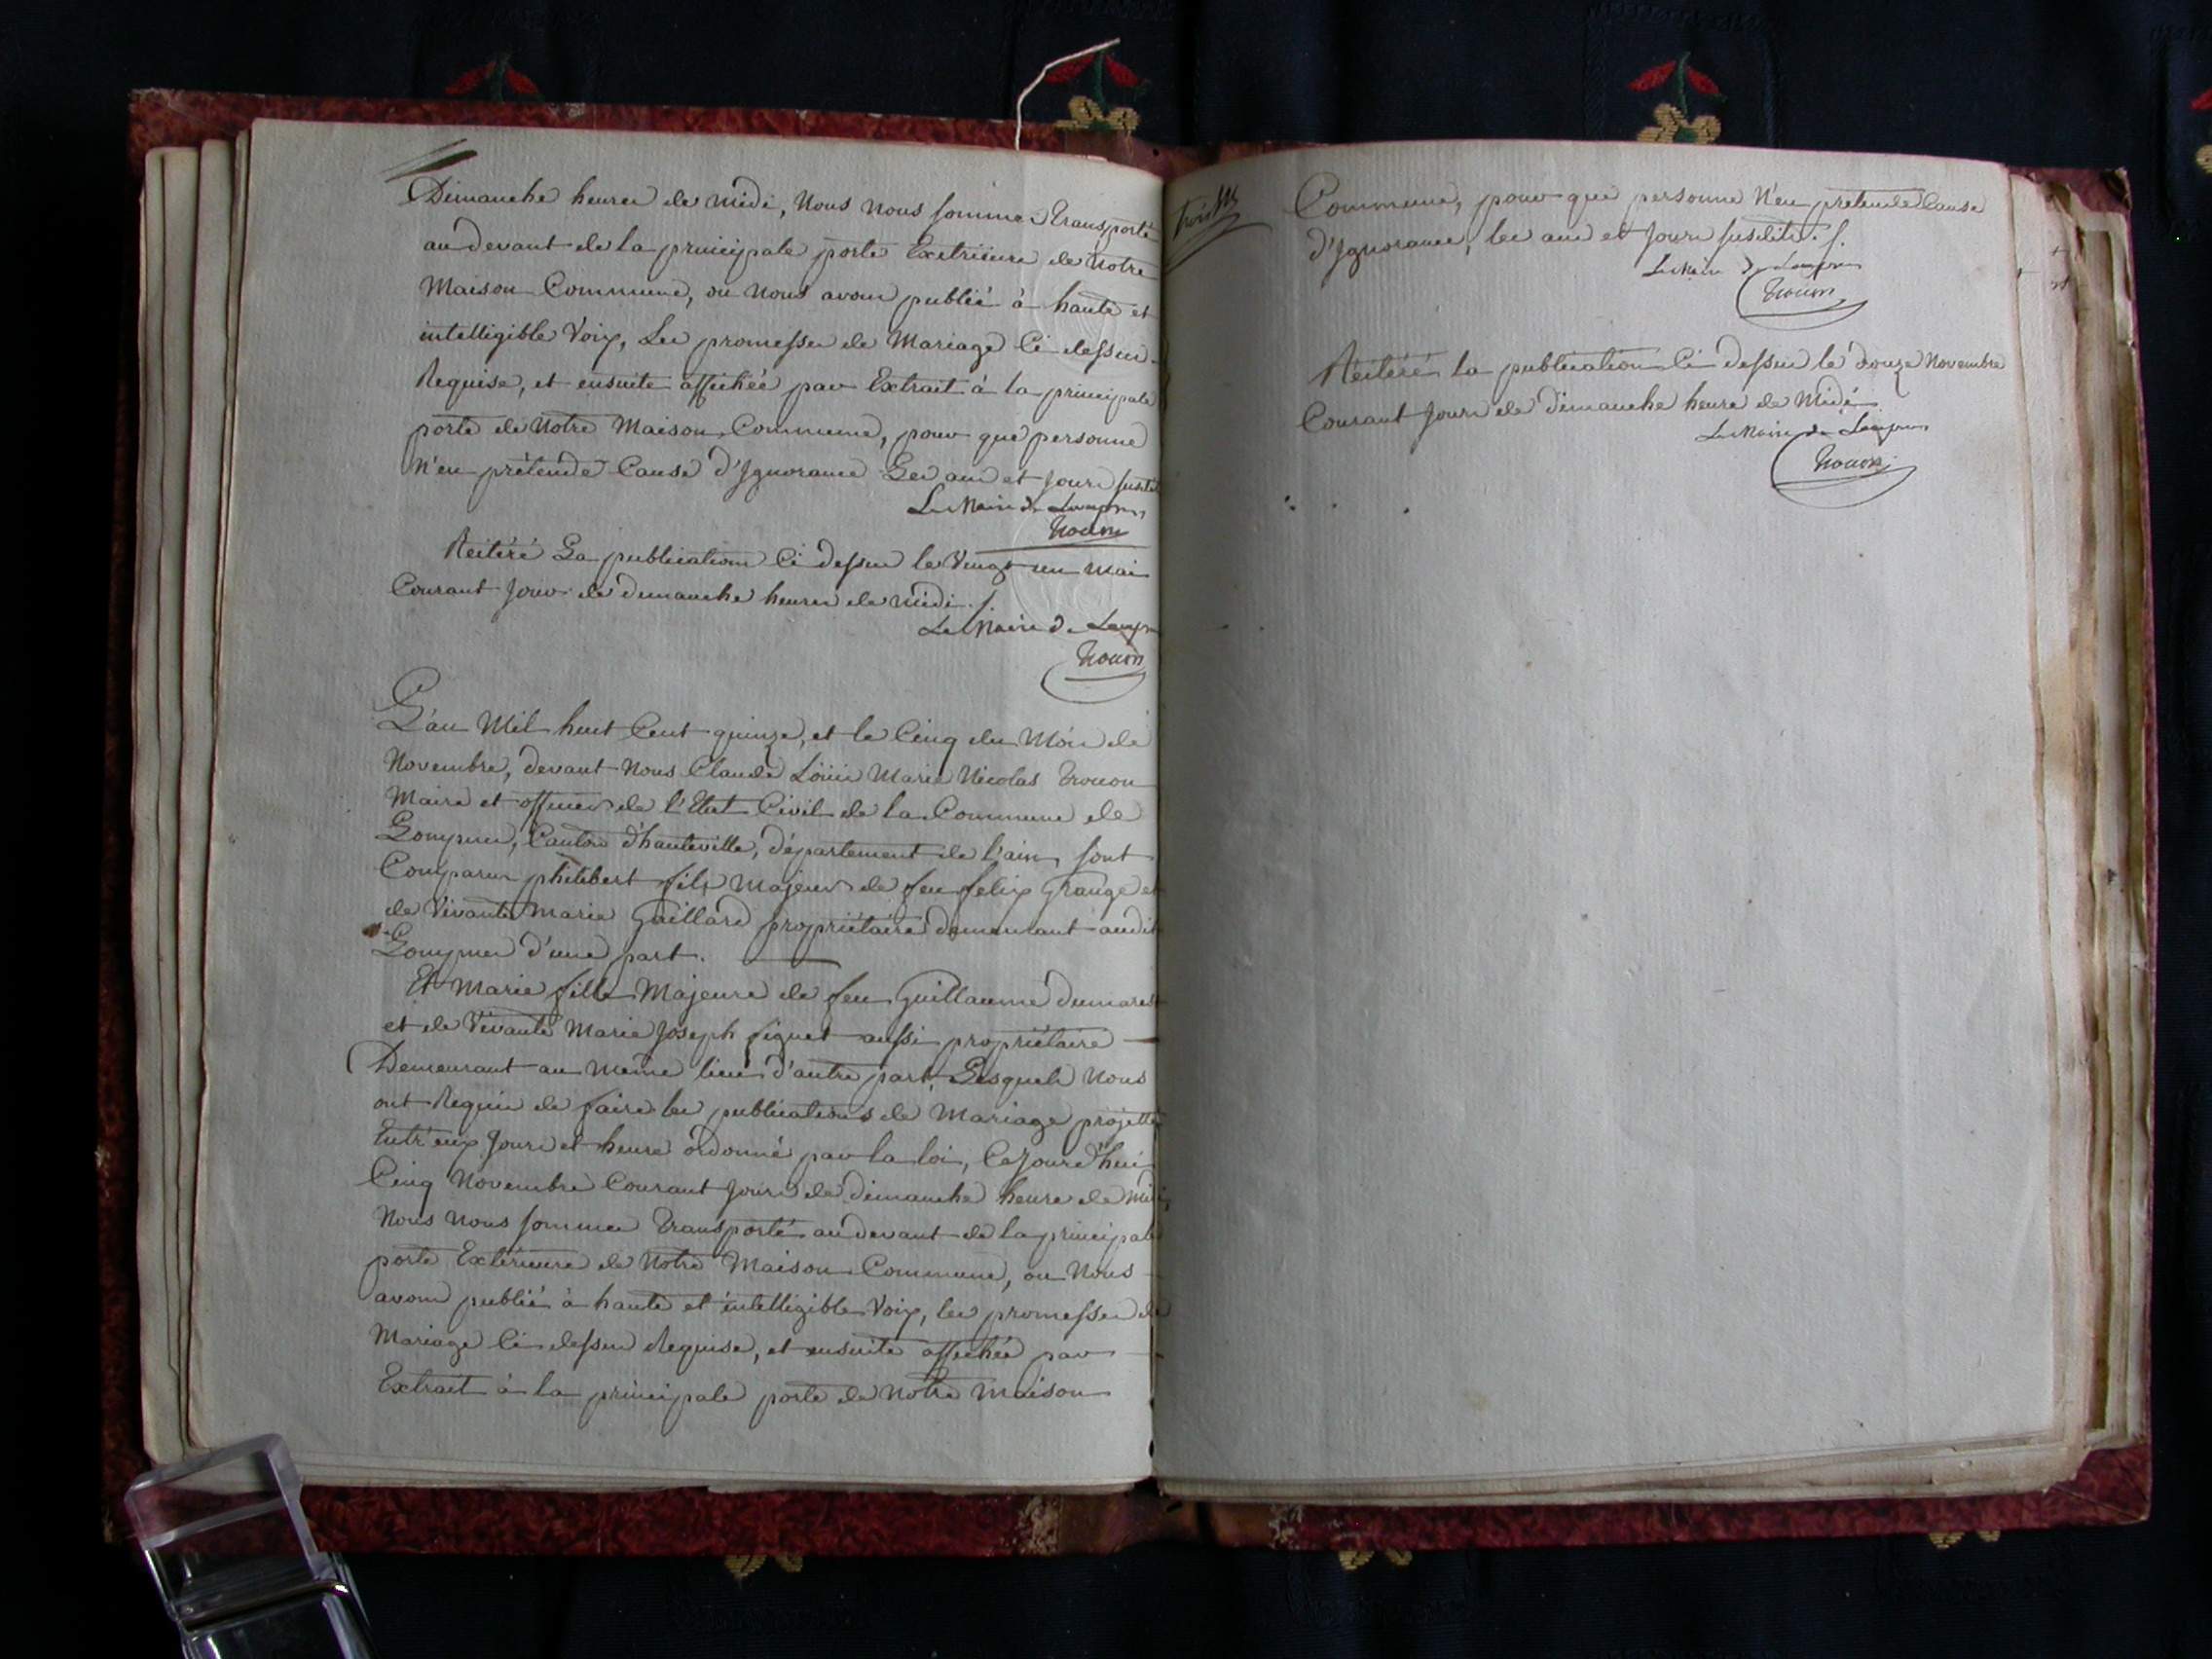 Dimanche heures de midi, Nous nous sommes transporté
au devant de la principale porte Exetrieure de Notre
Maison Commune, ou Nous avons publié à haute et
intelligible Voix, Les promesses de Mariage Ci dessus
Requise, et ensuite affichée par Extrait à la principale
porte de Notre Maison Commune, pour que personne
N'en prétende Cause d'Ignorance Les an et jours susdits
Le Maire de Lompnes
Trocon
Reitéré La publication Ci dessus le Vingt un Mai
Courant Jour de dimanche heures de midi ./.
Le Maire de Lompnes
Trocon
L'an Mil huit Cent quinze, et le Cinq du Mois de
Novembre, devant Nous Claude Loüis Marie Nicolas Trocon
Maire et officier de l'Etat Civil de la Commune de
Lompnes, Canton d'hauteville, département de l'ain, sont
Comparus philibert fils Majeur de feu felix Grange et
de Vivante Marie Gaillard propriétaire demeurant audit
Lompnes d'une part.
Et Marie fille Majeure de feu Guillaume dumarest
et de Vivante Marie Joseph figuet aussi propriétaire
Demeurant au même lieu d'autre part, Lesquels Nous
ont Requis de faire les publications de Mariage projetté
Entr'eux Jours et heure ordonné par la loi, Cejourd'hui
Cinq Novembre Courant Jour de dimanche heure de midi,
Nous nous sommes Transporté au devant de la principale
porte Extérieure de Notre Maison Commune, ou Nous
avons publié à haute et intelligible Voix, les promesses de
Mariage Ci dessus Requise, et ensuite affichée par
Extrait à la principale porte de Notre Maison
trois
Commune, pour que personne N'en prétende Cause
d'Ignorance, les an et Jours susdits ./.
Le Maire de Lompnes
Trocon
Réitéré la publication Ci dessus le douze Novembre
Courant Jour de dimanche heure de Midi
Le Maire de Lompnes
Trocon